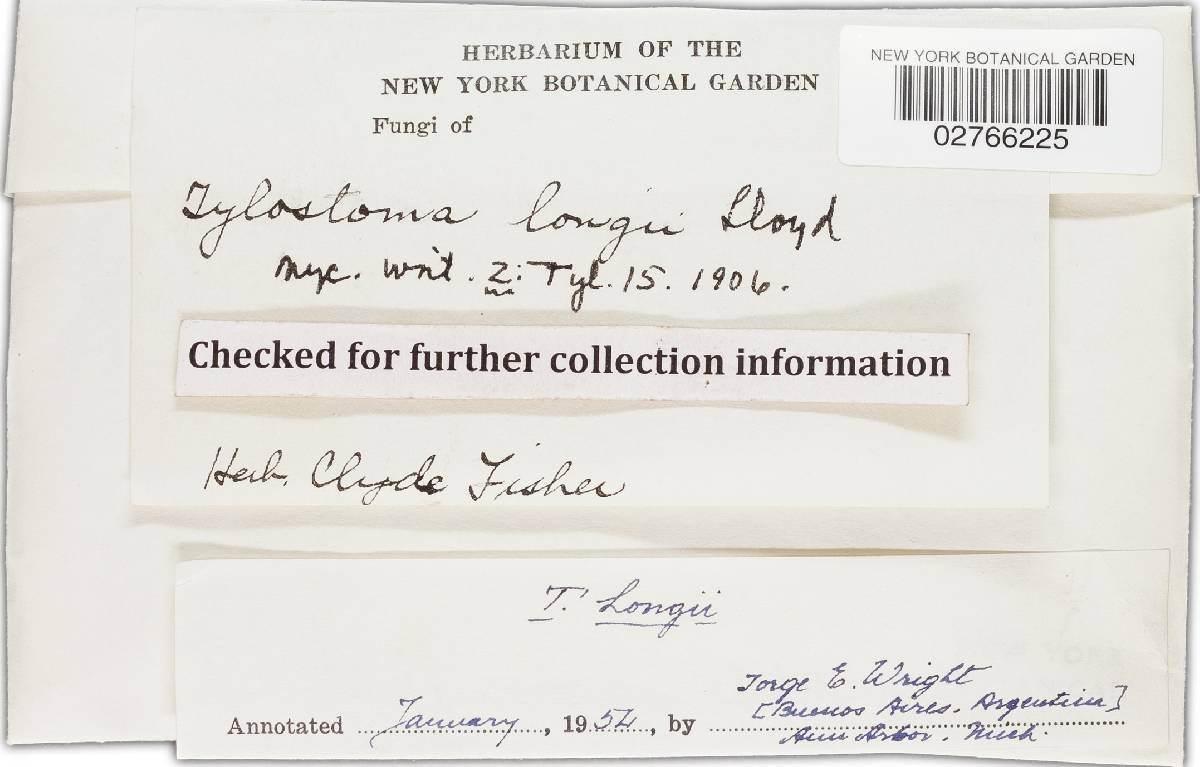 HERBARIUM OF THE
NEW YORK BOTANICAL GARDEN
Fungi of
NEW YORK BOTANICAL GARDEN
02766225
Tylostoma longii Lloyd
Myc. Writ. 2: Tyl. 15. 1906.
Checked for further collection information
Herb. Clyde Fisher
T. Longii
Jorge E. Wright
[Buenos Aires. Argentina]
Annotated January, 1954, by
Ann Arbor. Mich.